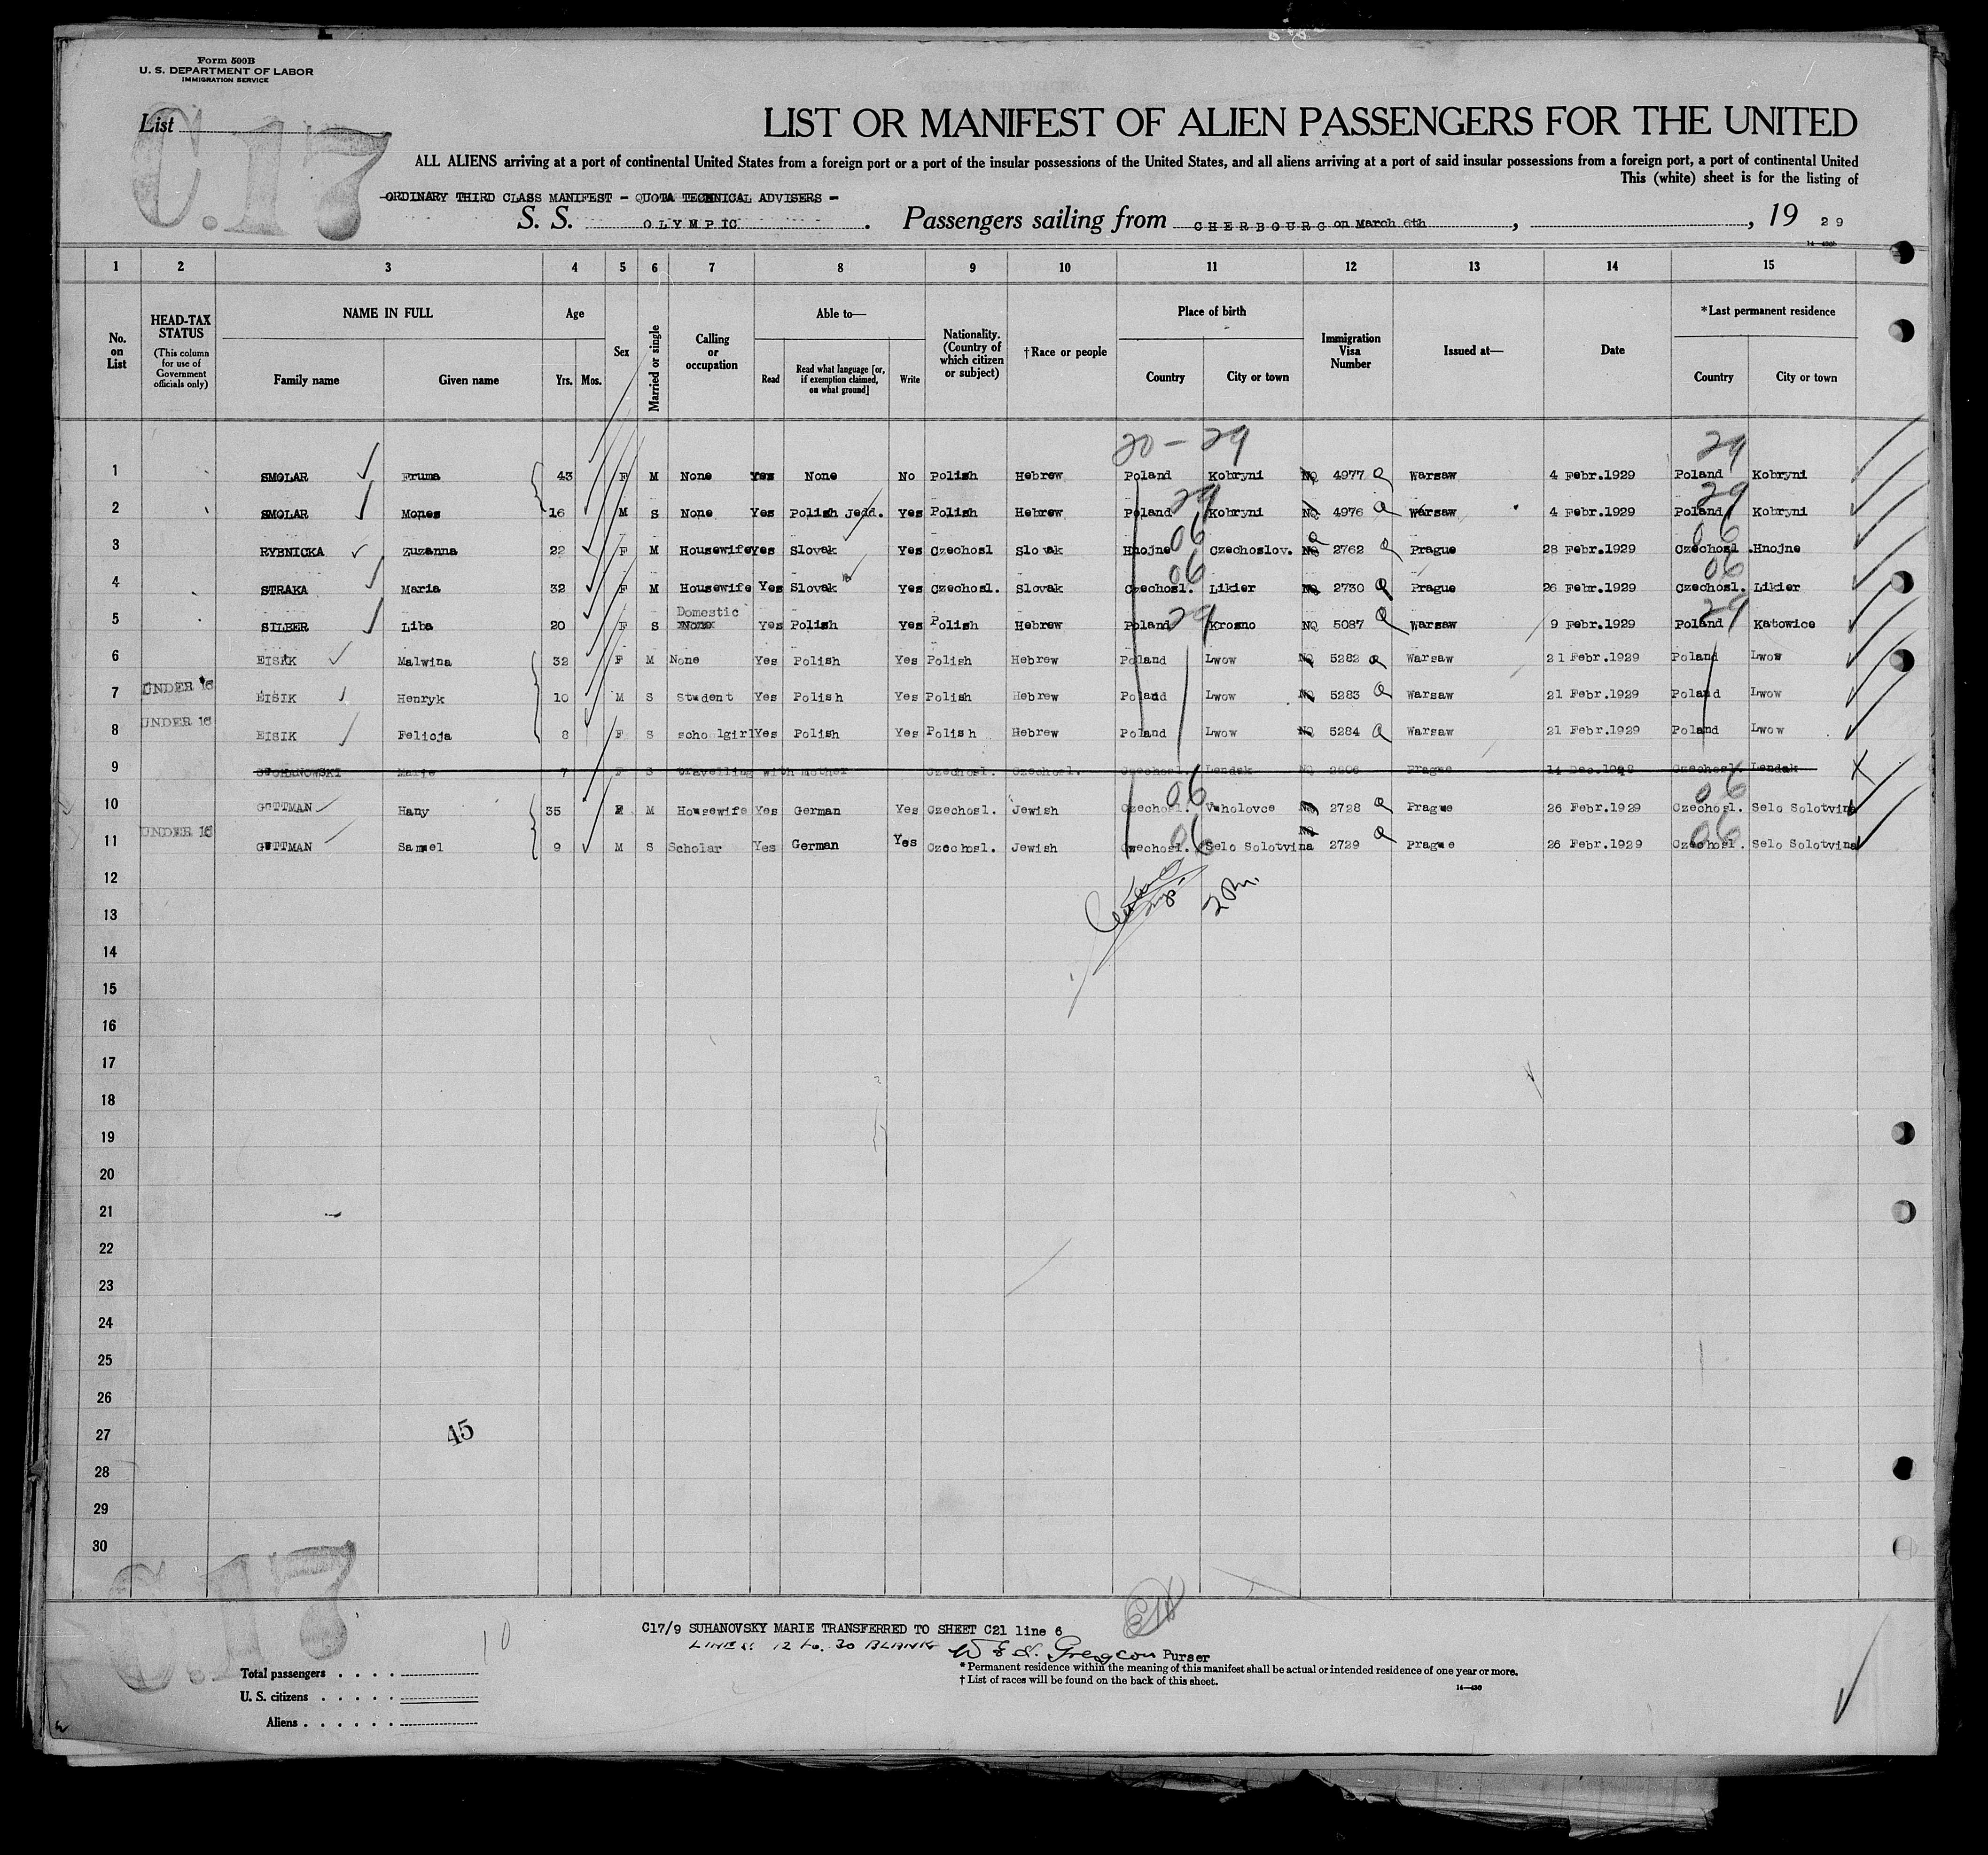 Form 500B
U. S. DEPARTMENT OF LABOR
IMMIGRATION SERVICE
List C.17
LIST OR MANIFEST OF ALIEN PASSENGERS FOR THE UNITED
ALL ALIENS arriving at a port of continental United States from a foreign port or a port of the insular possessions of the United States, and all aliens arriving at a port of said insular possessions from a foreign port, a port of continental United
This (white) sheet is for the listing of
-ORDINARY THIRD CLASS MANIFEST - QUOTA TECHNICAL ADVISERS -
S. S. OLYMPIC. Passengers sailing from CHERBOURG on March 6th, , 19 29
14-430b
1 2 3 4 5 6 7 8 9 10 11 12 13 14 15
No. on List
HEAD-TAX STATUS (This column for use of Government officials only)
NAME IN FULL
Family name Given name
Age
Yrs. Mos.
Sex
Married or single
Calling or occupation
Able to—
Read Read what language [or, if exemption claimed, on what ground] Write
Nationality. (Country of which citizen or subject)
†Race or people
Place of birth
Country City or town
Immigration Visa Number
Issued at—
Date
*Last permanent residence
Country City or town
20 - 29 29
1 SMOLAR Fruma 43 F M None Yes None No Polish Hebrew Poland Kobryni NQ 4977 Warsaw 4 Febr.1929 Poland Kobryni
29 29
2 SMOLAR Mones 16 M S None Yes Polish Jedd. Yes Polish Hebrew Poland Kobryni NQ 4976 Warsaw 4 Febr.1929 Poland Kobryni
06 06
3 RYBNICKA Zuzanna 22 F M Housewife Yes Slovak Yes Czechosl Slovak Hnojne Czechoslov. NQ 2762 Prague 28 Febr.1929 Czechosl. Hnojne
06 06
4 STRAKA Maria 32 F M Housewife Yes Slovak Yes Czechosl. Slovak Czechosl. Likier NQ 2730 Prague 26 Febr.1929 Czechosl. Likier
Domestic
29 29
5 SILBER Liba 20 F S None Yes Polish Yes Polish Hebrew Poland Krosno NQ 5087 Warsaw 9 Febr.1929 Poland Katowice
6 EISIK Malwina 32 F M None Yes Polish Yes Polish Hebrew Poland Lwow NQ 5282 Warsaw 21 Febr.1929 Poland Lwow
7 UNDER 16 EISIK Henryk 10 M S Student Yes Polish Yes Polish Hebrew Poland Lwow NQ 5283 Warsaw 21 Febr.1929 Poland Lwow
8 UNDER 16 EISIK Felicja 8 F S schoolgirl Yes Polish Yes Polish Hebrew Poland Lwow NQ 5284 Warsaw 21 Febr.1929 Poland Lwow
9 SUCHANOWSKI Marie 7 F S travelling with mother Czechosl. Czechosl. Czechosl. Lendak NQ Prague 14 Dec. Czechosl. Lendak
06 06
10 GUTTMAN Hany 35 F M Housewife Yes German Yes Czechosl. Jewish Czechosl. Vuholovce NQ 2728 Prague 26 Febr.1929 Czechosl. Selo Solotvina
06 06
11 UNDER 16 GUTTMAN Samuel 9 M S Scholar Yes German Yes Czechosl. Jewish Czechosl. Selo Solotvina NQ 2729 Prague 26 Febr.1929 Czechosl. Selo Solotvina
12
13
14
15
16
17
18
19
20
21
22
23
24
25
26
27
28
29
30
45
C.17
10
C17/9 SUHANOVSKY MARIE TRANSFERRED TO SHEET C21 line 6
LINES 12 to. 30 BLANK
Purser
Total passengers . . . .
U. S. citizens . . . . .
Aliens . . . . . .
*Permanent residence within the meaning of this manifest shall be actual or intended residence of one year or more.
†List of races will be found on the back of this sheet.
14—430